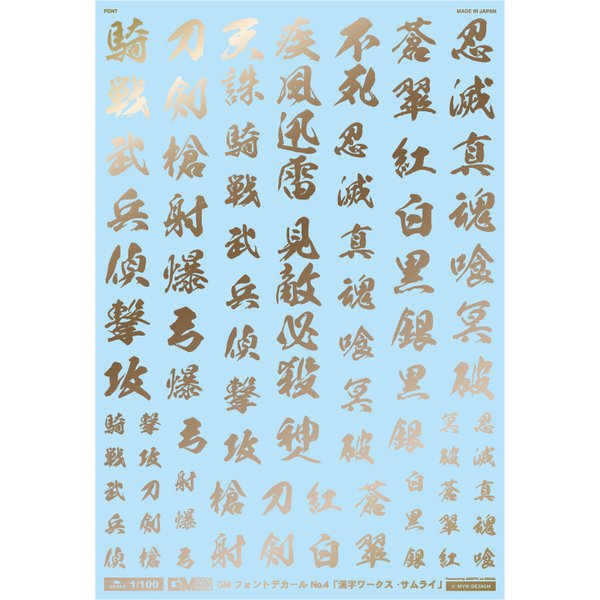 FONT
MADE IN JAPAN
忍滅真魂喰冥破
蒼翠紅白黒銀黒銀
不死忍滅真魂喰冥破
疾風迅雷見敵必殺
天誅騎戦武兵偵撃攻
刀剣槍射爆弓爆弓
騎戦武兵偵撃攻
忍滅真魂喰
冥破蒼翠紅
白黒銀
蒼翠
紅白
刀剣
槍射
射爆弓
撃攻刀剣槍
騎戦武兵偵
SCALE 1/100
GM フォントデカール No.4「漢字ワークス・サムライ」
© MYK DESIGN